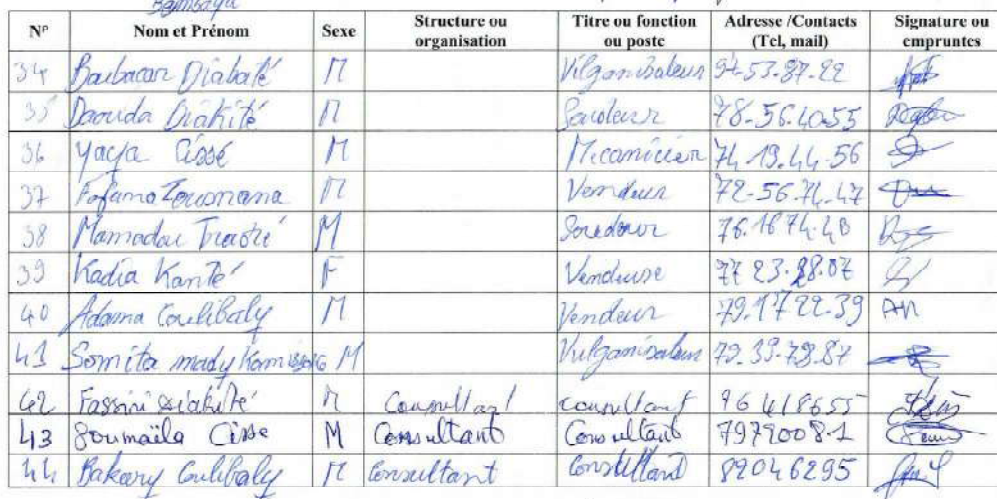 Bambaya
N° Nom et Prénom Sexe Structure ou organisation Titre ou fonction ou poste Adresse /Contacts (Tel, mail) Signature ou empruntes
34 Baubacar Diabaté M Vilganisateur 94-53-87-22
35 Daouda Diakité M Soudeur 78-56.40.55
36 Yaya Cissé M Mécanicien 74.19.44-56
37 Fofana Zoumana M Vendeur 72-56.74.47
38 Mamadou Traoré M Soudeur 76.1674.48
39 Kadia Kanté F Vendeuse 77 23.88.07
40 Adama Coulibaly M Vendeur 79.17 22.39 AM
41 Somita mady M Vulganisateur 79.39.79.87
42 Fassini Diakité M Consultant consultant 96418655
43 Soumaïla Cisse M Consultant Consultant 7979008-1
44 Bakary Coulibaly M Consultant Consultant 89046295